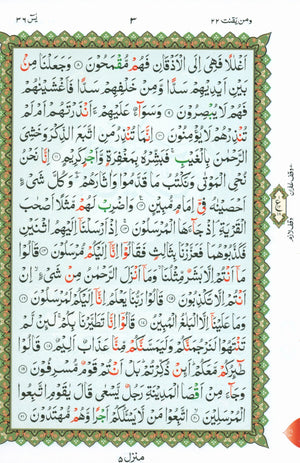 ومن يقنت ٢٢ ٣ يس ٣٦
اَغْلٰلًا فَهِيَ اِلَى الْاَذْقَانِ فَهُمْ مُّقْمَحُوْنَ ۝ وَجَعَلْنَا مِنْۢ
بَيْنِ اَيْدِيْهِمْ سَدًّا وَّمِنْ خَلْفِهِمْ سَدًّا فَاَغْشَيْنٰهُمْ
فَهُمْ لَا يُبْصِرُوْنَ ۝ وَسَوَآءٌ عَلَيْهِمْ ءَاَنْذَرْتَهُمْ اَمْ لَمْ
تُنْذِرْهُمْ لَا يُؤْمِنُوْنَ ۝ اِنَّمَا تُنْذِرُ مَنِ اتَّبَعَ الذِّكْرَ وَخَشِيَ
الرَّحْمٰنَ بِالْغَيْبِ ۚ فَبَشِّرْهُ بِمَغْفِرَةٍ وَّاَجْرٍ كَرِيْمٍ ۝ اِنَّا نَحْنُ
نُحْيِ الْمَوْتٰى وَنَكْتُبُ مَا قَدَّمُوْا وَاٰثَارَهُمْ ۭ وَكُلَّ شَيْءٍ
اَحْصَيْنٰهُ فِيْٓ اِمَامٍ مُّبِيْنٍ ۝ وَاضْرِبْ لَهُمْ مَّثَلًا اَصْحٰبَ
الْقَرْيَةِ ۘ اِذْ جَآءَهَا الْمُرْسَلُوْنَ ۝ اِذْ اَرْسَلْنَآ اِلَيْهِمُ اثْنَيْنِ
فَكَذَّبُوْهُمَا فَعَزَّزْنَا بِثَالِثٍ فَقَالُوْٓا اِنَّآ اِلَيْكُمْ مُّرْسَلُوْنَ ۝ قَالُوْا
مَآ اَنْتُمْ اِلَّا بَشَرٌ مِّثْلُنَا ۙ وَمَآ اَنْزَلَ الرَّحْمٰنُ مِنْ شَيْءٍ ۙ اِنْ
اَنْتُمْ اِلَّا تَكْذِبُوْنَ ۝ قَالُوْا رَبُّنَا يَعْلَمُ اِنَّآ اِلَيْكُمْ لَمُرْسَلُوْنَ ۝
وَمَا عَلَيْنَآ اِلَّا الْبَلٰغُ الْمُبِيْنُ ۝ قَالُوْٓا اِنَّا تَطَيَّرْنَا بِكُمْ ۚ لَئِنْ لَّمْ
تَنْتَهُوْا لَنَرْجُمَنَّكُمْ وَلَيَمَسَّنَّكُمْ مِّنَّا عَذَابٌ اَلِيْمٌ ۝ قَالُوْا
طَآئِرُكُمْ مَّعَكُمْ ۭ اَئِنْ ذُكِّرْتُمْ ۭ بَلْ اَنْتُمْ قَوْمٌ مُّسْرِفُوْنَ ۝
وَجَآءَ مِنْ اَقْصَا الْمَدِيْنَةِ رَجُلٌ يَّسْعٰى قَالَ يٰقَوْمِ اتَّبِعُوا
الْمُرْسَلِيْنَ ۝ اتَّبِعُوْا مَنْ لَّا يَسْـَٔلُكُمْ اَجْرًا وَّهُمْ مُّهْتَدُوْنَ ۝
منزل ٥